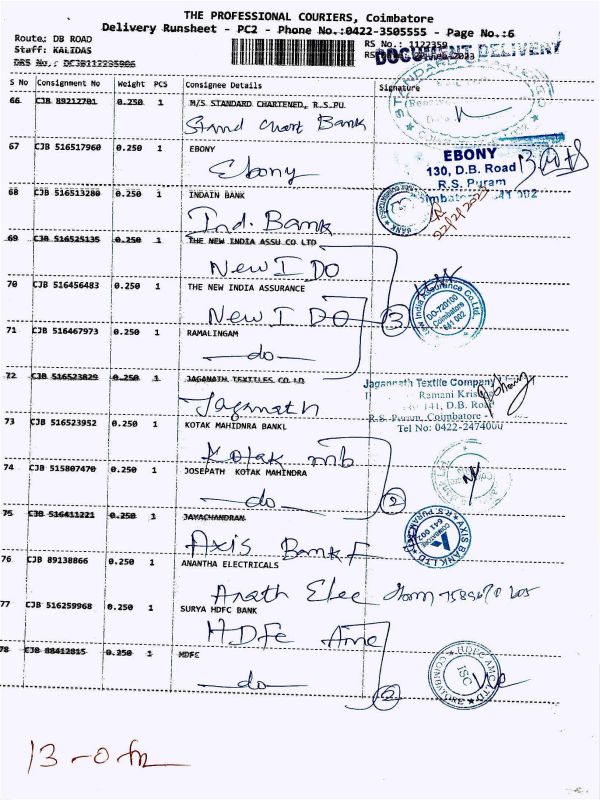 THE PROFESSIONAL COURIERS, Coimbatore
Delivery Runsheet - PC2 - Phone No.:0422-3505555 - Page No.:6
Route: DB ROAD
Staff: KALIDAS
DRS No.: DCJB112235906
RS No.: 1122359
DOCUMENT DELIVERY
S No Consignment No Weight PCS Consignee Details Signature
66 CJB 89212701 0.250 1 M/S STANDARD CHARTENED, R.S.PU
Stand Chart Bank
67 CJB 516517960 0.250 1 EBONY
Ebony
EBONY
130, D.B. Road
R.S. Puram
68 CJB 516513280 0.250 1 INDAIN BANK
Ind. Bank
22/2/2023
69 CJB 516525135 0.250 1 THE NEW INDIA ASSU CO LTD
New I DO
70 CJB 516456483 0.250 1 THE NEW INDIA ASSURANCE
New I DO
3
New India Assurance Co.Ltd.
DO-720100
Coimbatore
641 002
71 CJB 516467973 0.250 1 RAMALINGAM
do
72 CJB 516523829 0.250 1 JAGANATH TEXTILES CO LD
Jaganath
Jagannath Textile Company
Ramani Kris
141, D.B. Road
R.S. Puram, Coimbatore
Tel No: 0422-2474000
73 CJB 516523952 0.250 1 KOTAK MAHIDNRA BANKL
Kotak mb
74 CJB 515807470 0.250 1 JOSEPATH KOTAK MAHINDRA
do
2
75 CJB 516411221 0.250 1 JAYACHANDRAN
Axis Bank F
AXIS BANK LTD
R.S. PURAM
COIMBATORE
641 002
76 CJB 89138866 0.250 1 ANANTHA ELECTRICALS
Anath Elee
77 CJB 516259968 0.250 1 SURYA HDFC BANK
HDFc Amc
78 CJB 88412815 0.250 1 HDFC
do
2
HDFC AMC LTD
ISC
COIMBATORE
13-0